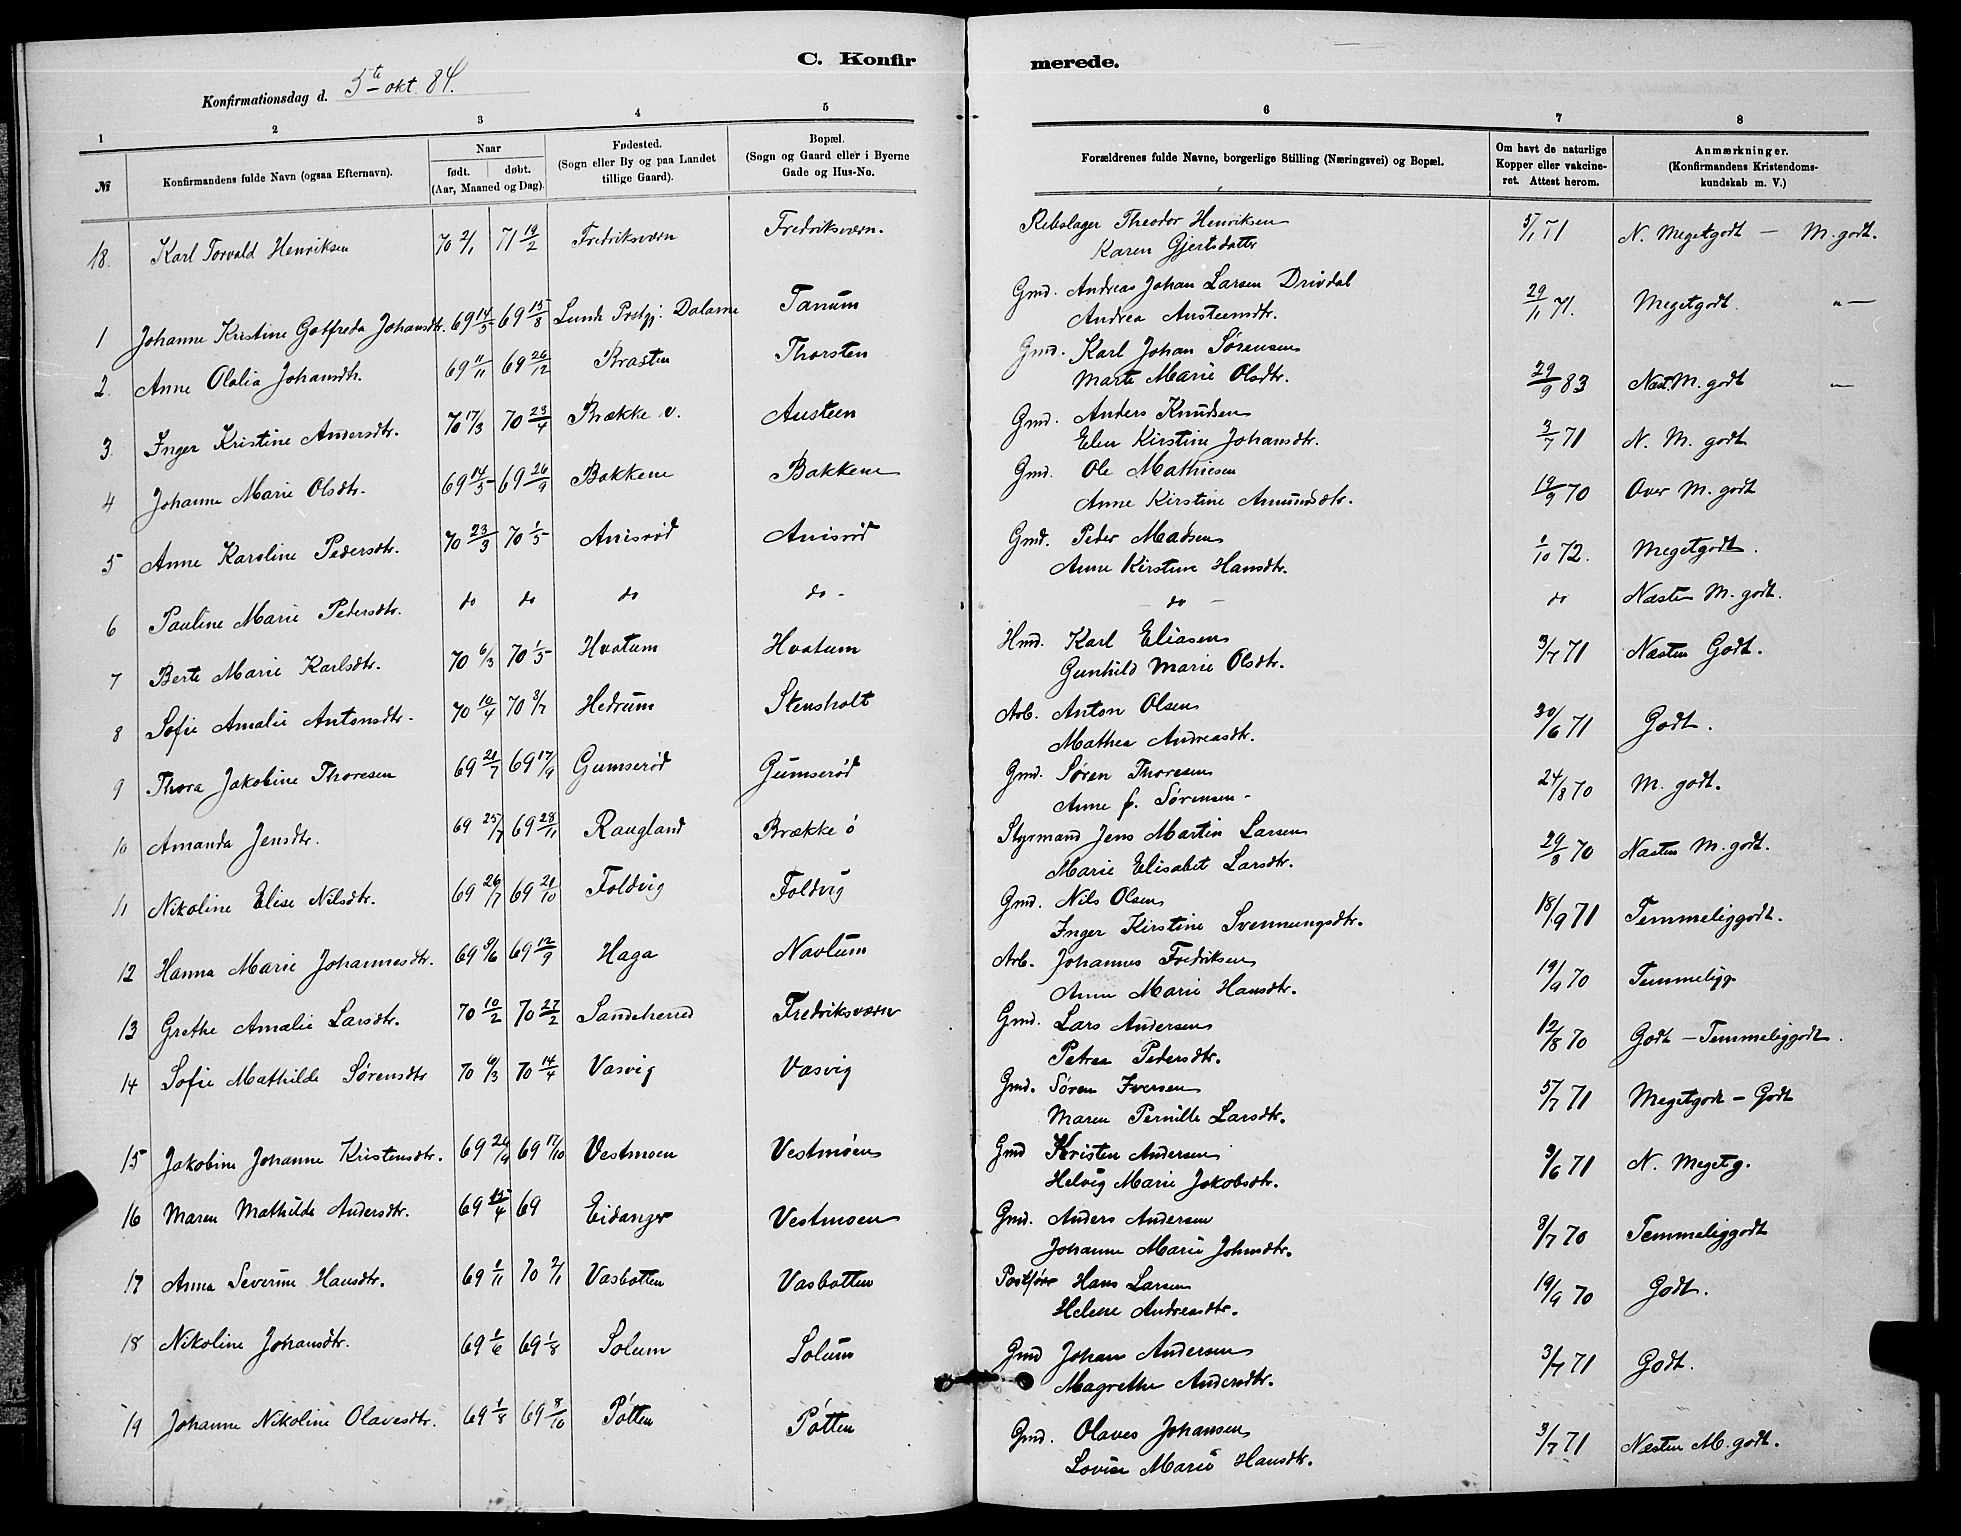 C. Konfirmerede.
Konfirmationsdag d. 5te okt. 84.
1 2 3 4 5 6 7 8
№ Konfirmandens fulde Navn (ogsaa Efternavn). Naar født. døbt. (Aar, Maaned og Dag). Fødested. (Sogn eller By og paa Landet tillige Gaard). Bopæl. (Sogn og Gaard eller i Byerne Gade og Hus-No. Forældrenes fulde Navne, borgerlige Stilling (Næringsvei) og Bopæl. Om havt de naturlige Kopper eller vakcineret. Attest herom. Anmærkninger. (Konfirmandens Kristendomskundskab m. V.)
18. Karl Torvald Henriksen 70 2/1 71 19/2 Fredriksværn Fredriksværn. Rebslager Theodor Henriksen 5/1 71 N. Megetgodt — M. godt.
Karen Gjertsdatter
1 Johanne Kristine Gotfreda Johansdtr. 69 14/5 69 15/8 Lunde Pestgj. Dalarne Tanum Gmd. Andreas Johan Larsen Drivdal 29/1 71. Megetgodt. "—
Andrea Austeensdtr.
2. Anne Olalia Johansdtr. 69 11/11 69 26/12 Brasten Thorsten Gmd. Karl Johan Sørensen 29/9 83 Næst. M. godt "
Marte Marie Olsdtr.
3. Inger Kristine Andersdtr. 70 17/3 70 23/4 Brække v. Austeen Gmd. Anders Knudsen 3/7 71 N. M. godt
Elen Kirstine Johansdtr.
4 Johanne Marie Olsdtr. 69 14/5 69 26/9 Bakkene Bakkene Gmd. Ole Mathiesen 19/9 70 Over M. godt
Anne Kirstine Amundsdtr.
5 Anne Karoline Pedersdtr. 70 23/3 70 1/5 Anisrød Anisrød Gmd. Peder Madsen 1/10 72. Megetgodt.
Anne Kirstine Hansdtr.
6 Pauline Marie Pedersdtr. do do do do - — do — do Næsten M. godt.
7 Berte Marie Karlsdtr. 70 6/3 70 1/5 Hvatum Hvatum Hmd. Karl Eliasen 3/7 71 Næsten Godt.
Gunhild Marie Olsdtr.
8 Sofie Amalie Antonsdtr. 70 10/4 70 3/7 Hedrum Stensholt Arb. Anton Olsen 30/6 71 Godt.
Mathea Andreasdtr.
9 Thora Jakobine Thoresen 69 21/7 69 17/9 Gumserød Gumserød Gmd. Søren Thoresen 24/8 70 M. godt.
Anne f. Sørensen -
10 Amanda Jensdtr. 69 25/7 69 28/11 Raugland Brække ø Styrmand Jens Martin Larsen 29/8 70 Næsten M. godt.
Marie Elisabet Larsdtr.
11 Nikoline Elise Nilsdtr. 69 26/7 69 21/10 Foldvig Foldvig Gmd. Nils Olsen 18/9 71 Temmeliggodt.
Inger Kirstine Svennungsdtr.
12 Hanna Marie Johannesdtr. 69 9/6 69 12/9 Haga Navlum Arb. Johannes Fredriksen 19/9 70 Temmeligg.
Anne Marie Hansdtr.
13 Grethe Amalie Larsdtr. 70 10/2 70 27/2 Sandeherred Fredriksværn Gmd. Lars Andersen 12/8 70 Godt — Temmeliggodt.
Petrea Pedersdtr.
14 Sofie Mathilde Sørensdtr 70 9/3 70 14/4 Vasvig Vasvig Gmd. Søren Iversen 5/7 71 Megetgodt — Godt
Maren Pernille Larsdtr.
15 Jakobine Johanne Kristensdtr. 69 24/9 69 17/10 Vestmoen Vestmøen Gmd Kristen Andersen 9/6 71 N. Megetg.
Helvig Marie Jakobsdtr.
16 Maren Mathilde Andersdtr. 69 15/4 69 Eidanger Vestmoen Gmd. Anders Andersen 8/7 70 Temmeliggodt
Johanne Marie Johnsdtr.
17 Anna Severine Hansdtr. 69 1/11 70 2/1 Vasbotten Vasbotten Postfører Hans Larsen 19/9 70 Godt.
Helene Andreasdtr.
18 Nikoline Johansdtr. 69 1/6 69 1/8 Solum Solum Gmd Johan Andersen 3/7 71 Godt.
Magrethe Andersdtr.
19 Johanne Nikoline Olavesdtr. 69 1/8 69 8/10 Pøtten Pøtten Gmd. Olaves Johansen 3/7 71 Næsten M. godt.
Lovise Marie Hansdtr.